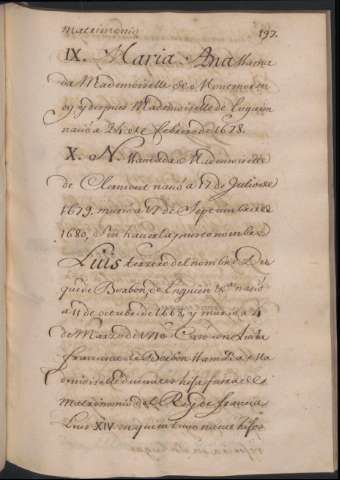 matrimonio 197.
IX. Maria Ana llama
da Mademoiselle de Montmoren
cy y despues Mademoiselle de Enguien
nació a 24 de Febrero de 1678.
X. N. llamada Mademoiselle
de Clermont nació a 17 de Julio de
1679. murió a 17 de Septiembre de
1680, sin haverla puesto nombre
Luis tercero del nombre Du
que de Borbon, de Enguien &c. nació
a 11 de octubre de 1668 y murió a 4
de Marzo de 1710. Casó con Luisa
Francisca de Borbon llamada Ma
demoiselle de nantes hija fuera de
Matrimonio del Rey de francia
Luis XIV. en quien tuvo nueve hijos